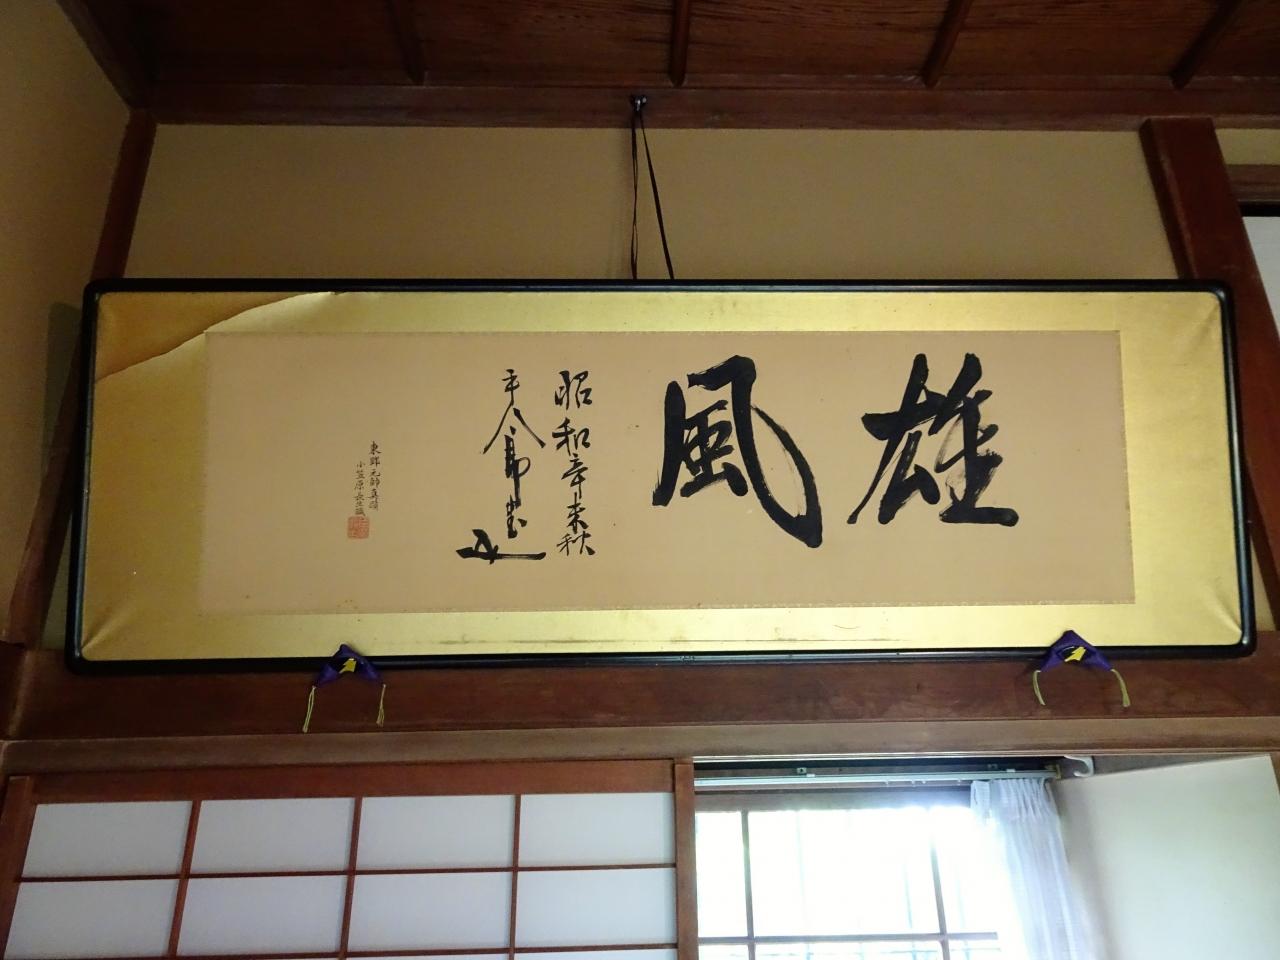 雄風
昭和辛未秋
平八郎書
東郷元帥真蹟
小笠原長生識